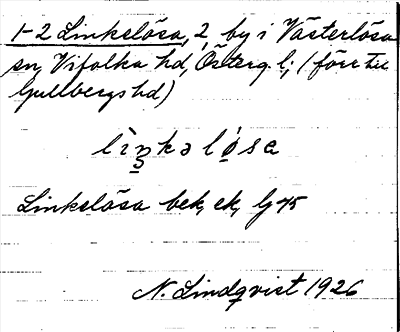 1-2 Linkelösa, 2, by i Västerlösa
sn, Vifolka hd, Österg. l; (förr till
Gullbergs hd)
lìn̥kəlo̤sa
Linkelösa bek, ek, Gj 45
N. Lindqvist 1926